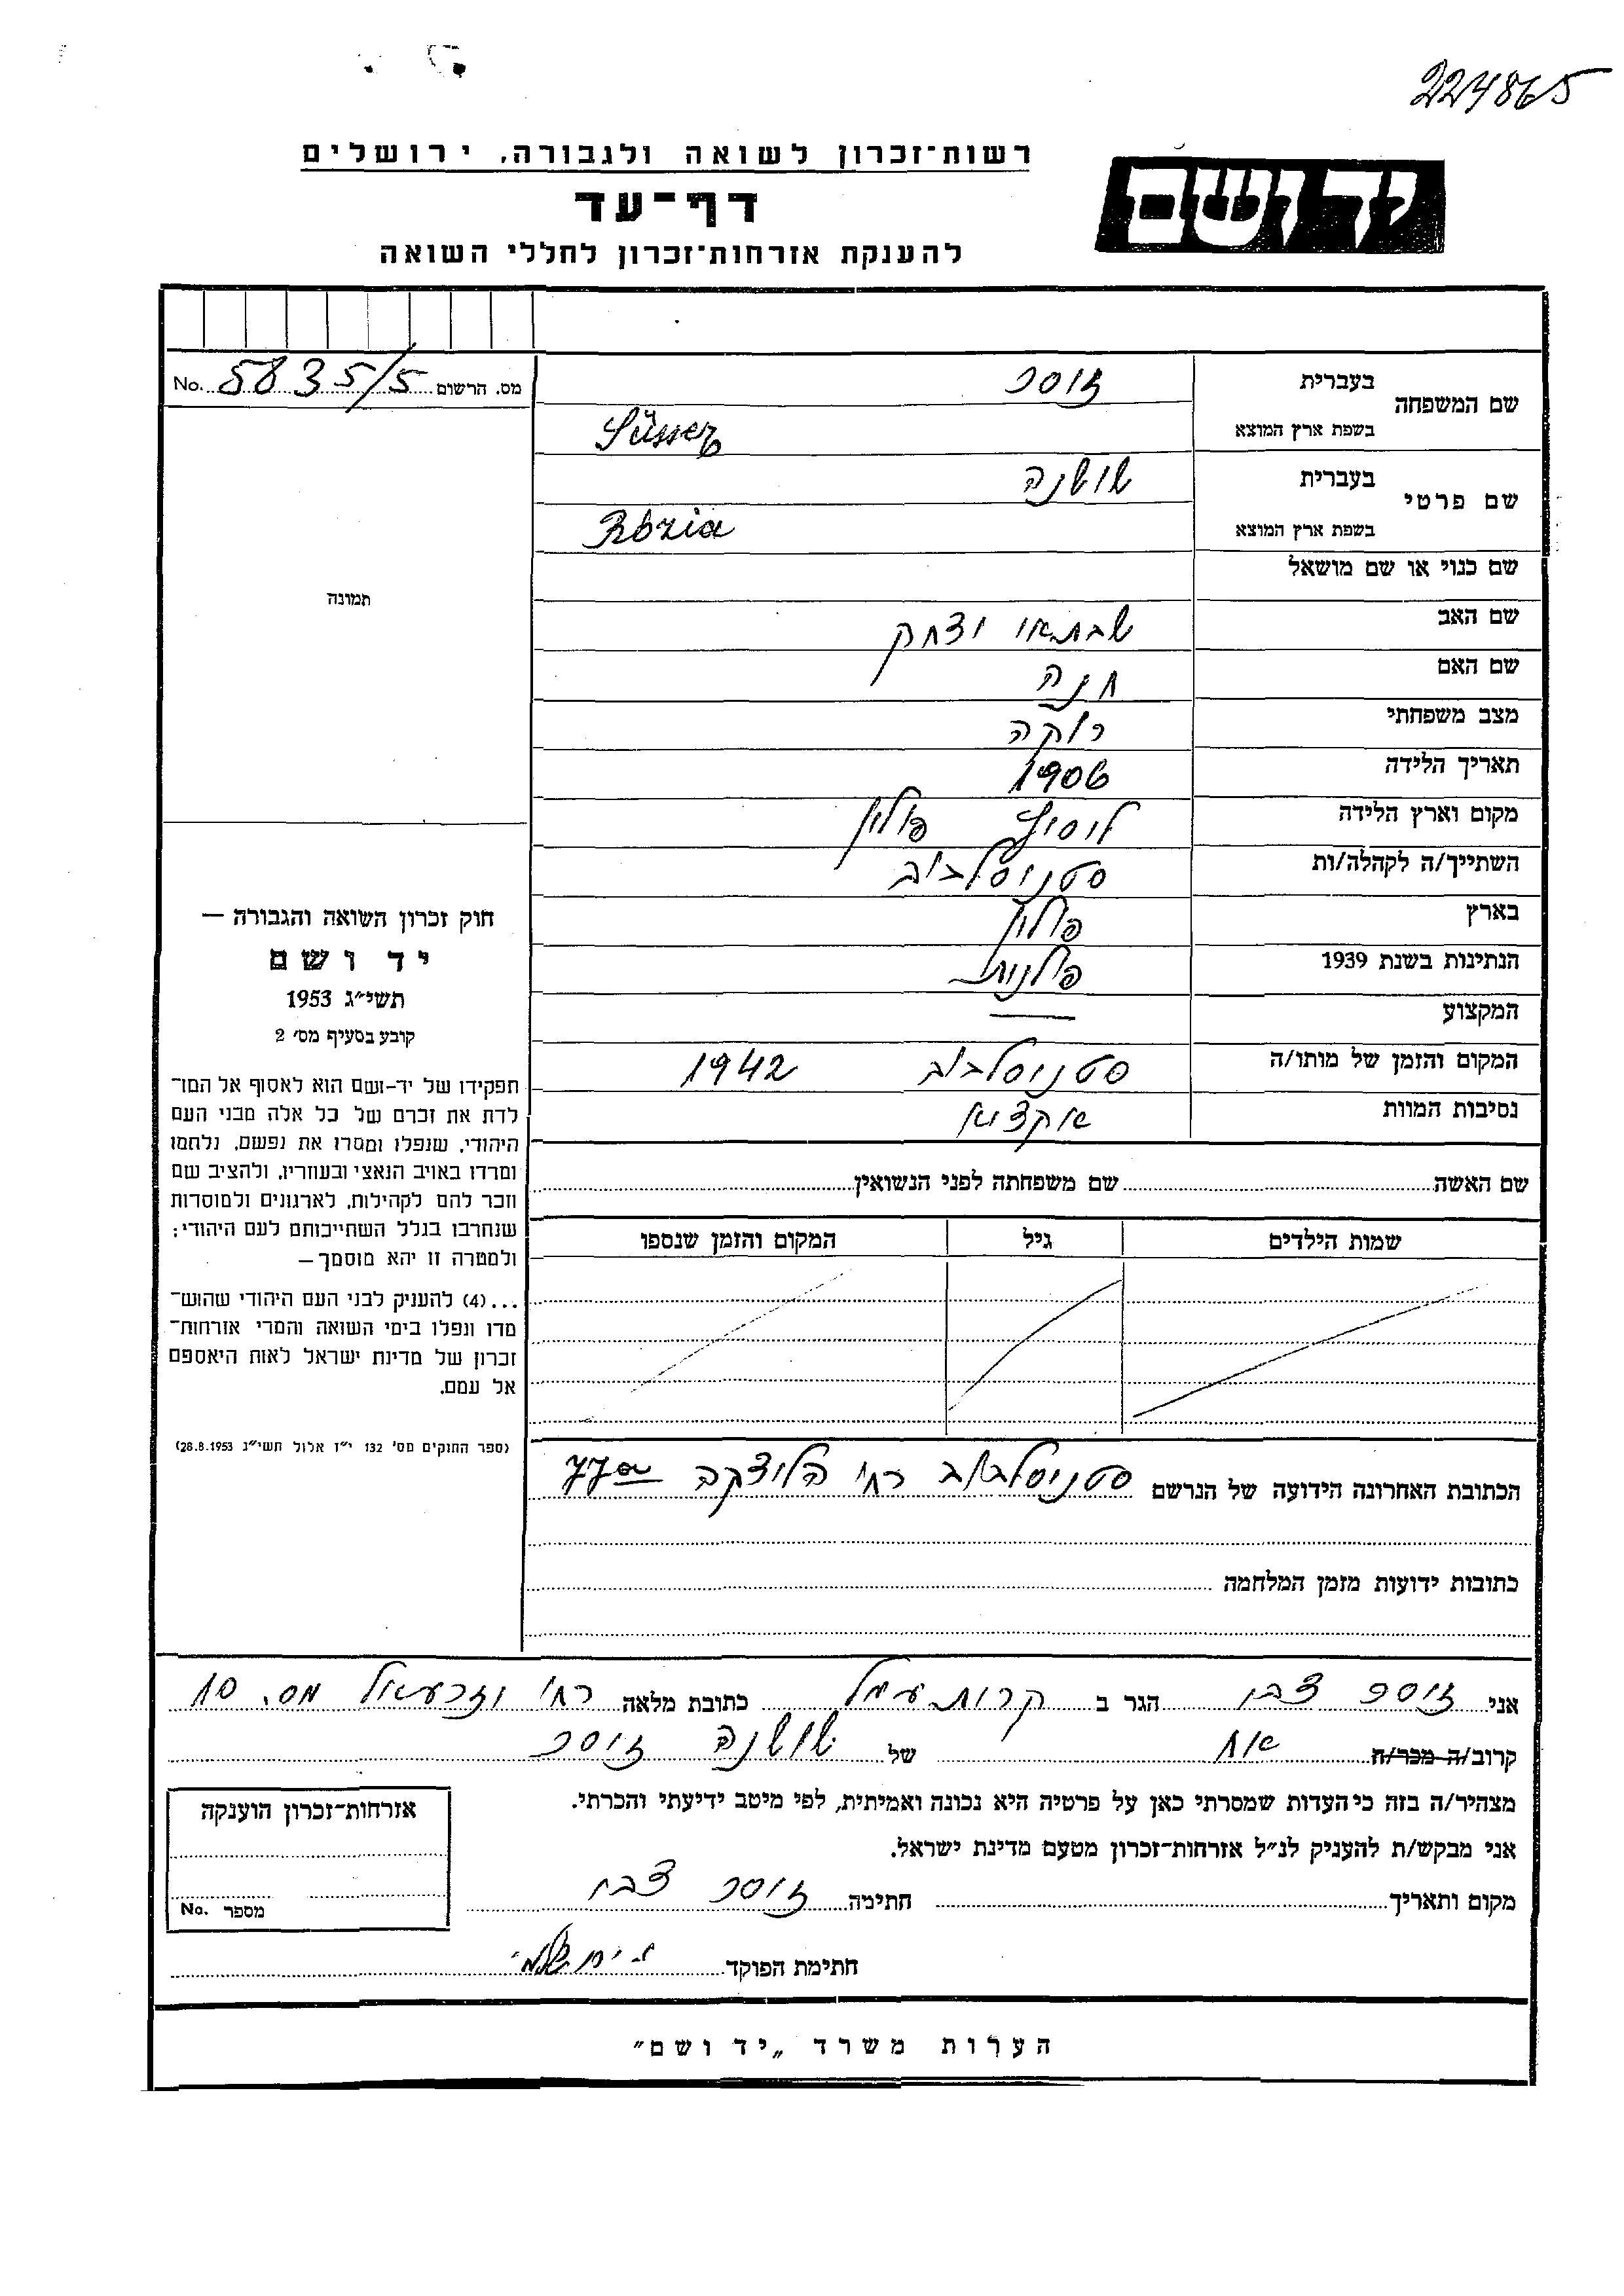 224865
ידושם
רשות־זכרון לשואה ולגבורה, ירושלים
דף־עד
להענקת אזרחות־זכרון לחללי השואה
מס. הרשום 5835/5 No.
שם המשפחה
בעברית זוסר
בשפת ארץ המוצא Süsser
שם פרטי
בעברית שושנה
בשפת ארץ המוצא Rózia
שם כנוי או שם מושאל
שם האב שבתאי יצחק
שם האם חנה
מצב משפחתי רוקה
תאריך הלידה 1906
מקום וארץ הלידה פולין
השתייך/ה לקהלה/ות סטניסלבוב
בארץ פולין
הנתינות בשנת 1939 פולנית
המקצוע —
המקום והזמן של מותו/ה סטניסלבוב 1942
נסיבות המוות אקציה
שם האשה שם משפחתה לפני הנשואין
שמות הילדים גיל המקום והזמן שנספו
הכתובת האחרונה הידועה של הנרשם סטניסלבוב רח' הליצקה 77a
כתובות ידועות מזמן המלחמה
תמונה
חוק זכרון השואה והגבורה —
יד ושם
תשי״ג 1953
קובע בסעיף מס׳ 2
תפקידו של יד-ושם הוא לאסוף אל המו־
לדת את זכרם של כל אלה מבני העם
היהודי, שנפלו ומסרו את נפשם, נלחמו
ומרדו באויב הנאצי ובעוזריו, ולהציב שם
וזכר להם לקהילות, לארגונים ולמוסדות
שנחרבו בגלל השתייכותם לעם היהודי;
ולמטרה זו יהא מוסמך—
...(4) להעניק לבני העם היהודי שהוש־
מדו ונפלו בימי השואה והמרי אזרחות־
זכרון של מדינת ישראל לאות היאספם
אל עמם.
(ספר החוקים מס׳ 132 י״ז אלול תשי״ג 28.8.1953)
אני זוסר צבי הגר ב קרית עמל כתובת מלאה רח' יזרעאל מס. 10
קרוב/ה מכר/ה אח של שושנה זוסר
מצהיר/ה בזה כי העדות שמסרתי כאן על פרטיה היא נכונה ואמיתית, לפי מיטב ידיעתי והכרתי.
אני מבקש/ת להעניק לנ״ל אזרחות־זכרון מטעם מדינת ישראל.
מקום ותאריך חתימה זוסר צבי
חתימת הפוקד
אזרחות־זכרון הוענקה
מספר No.
הערות משרד „יד ושם״